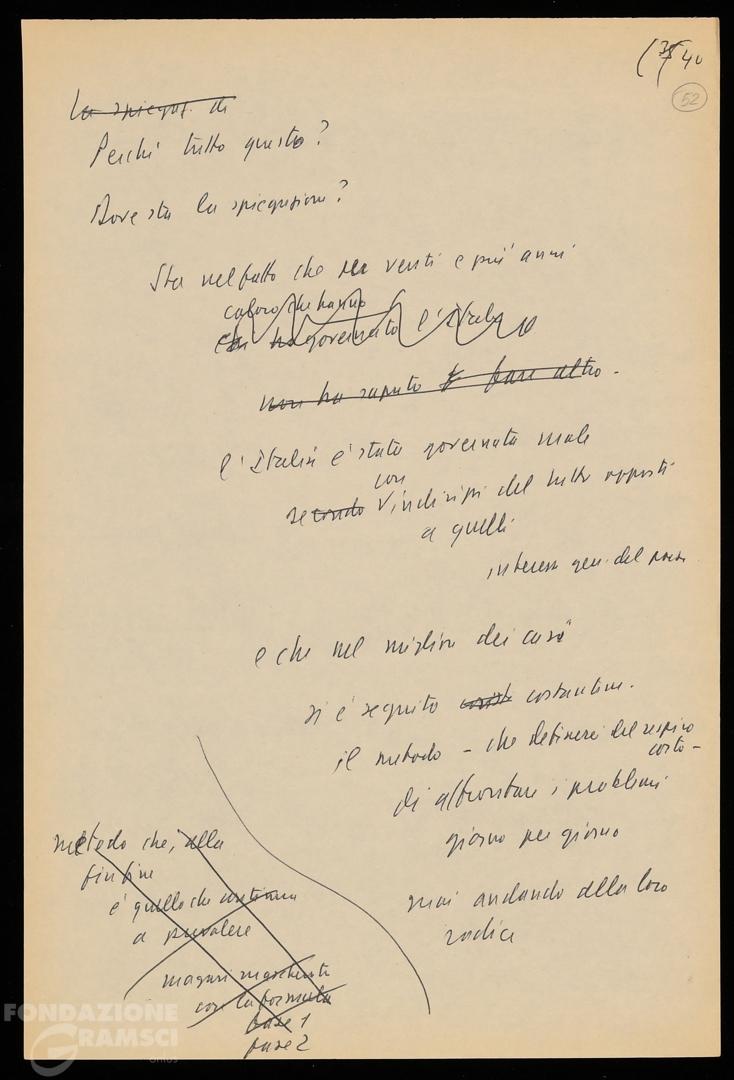 (35 40
52
La spiegaz. di
Perché tutto questo?
Dove sta la spiegazione?
Sta nel fatto che per venti e più anni
coloro che hanno
governato l'Italia
non ha saputo fare altro -
l'Italia è stata governata male
con
secondo indirizzi del tutto opposti
a quelli
interessi gen. del paese
e che nel migliore dei casi
si è seguito costantem.
il metodo - che definirei del respiro
corto -
di affrontare i problemi
giorno per giorno
mai andando alla loro
radice
metodo che, alla
fin fine
è quello che continua
a prevalere
magari mascherato
con la formula
fase 1
fase 2
FONDAZIONE
GRAMSCI
onlus